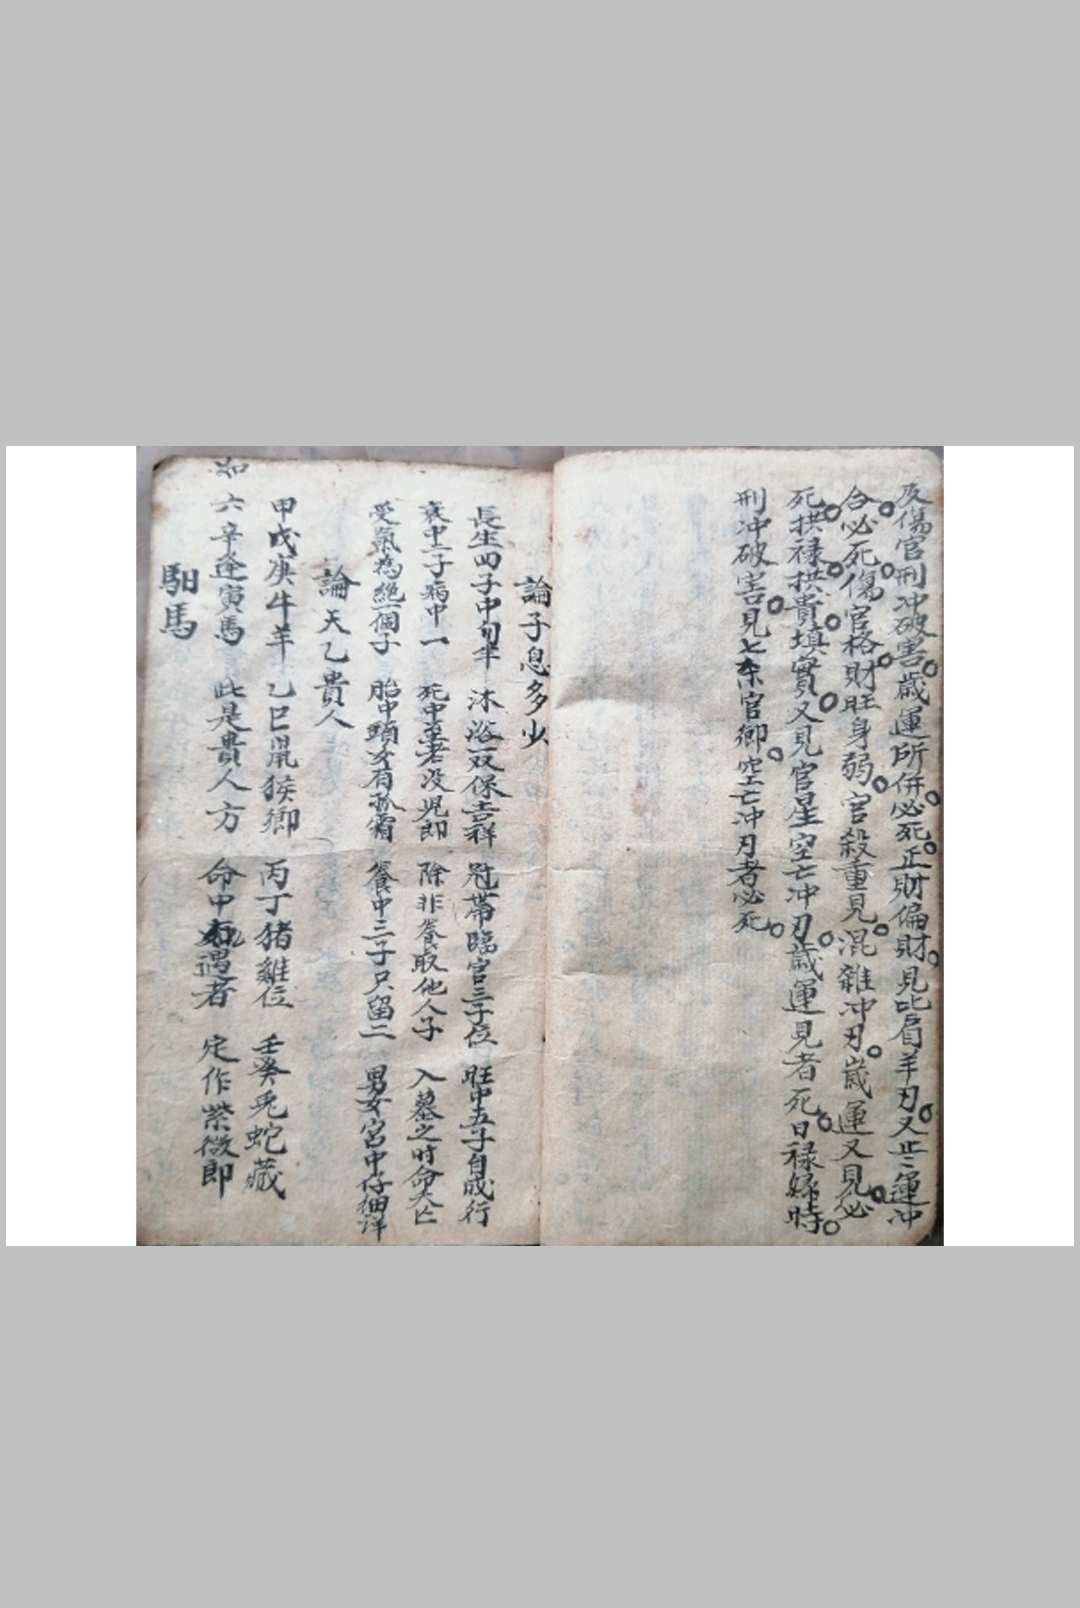 及傷官刑冲破害歲運所併必死正財偏財見比肩羊刃又歲運冲
合必死傷官格財旺身弱官殺重見混雜冲刃歲運又見必
死拱禄拱貴填實又見官星空亡冲刃歲運見者死日禄歸時
刑冲破害見七杀官卿空亡冲刃者必死
論子息多少
長生四子中旬半 沐浴双保吉祥 冠帶臨官三子位 旺中五子自成行
衰中二子病中一 死中至老没児郎 除非養取他人子 入墓之時命夭亡
受氣為絶一個子 胎中頭女有孤霜 養中三子只留二 男女宮中仔細详
論天乙貴人
甲戊庚牛羊 乙巳鼠猴鄉 丙丁猪雞位 壬癸兎蛇藏
六辛逢寅馬 此是貴人方 命中遇者 定作紫微郎
馹馬